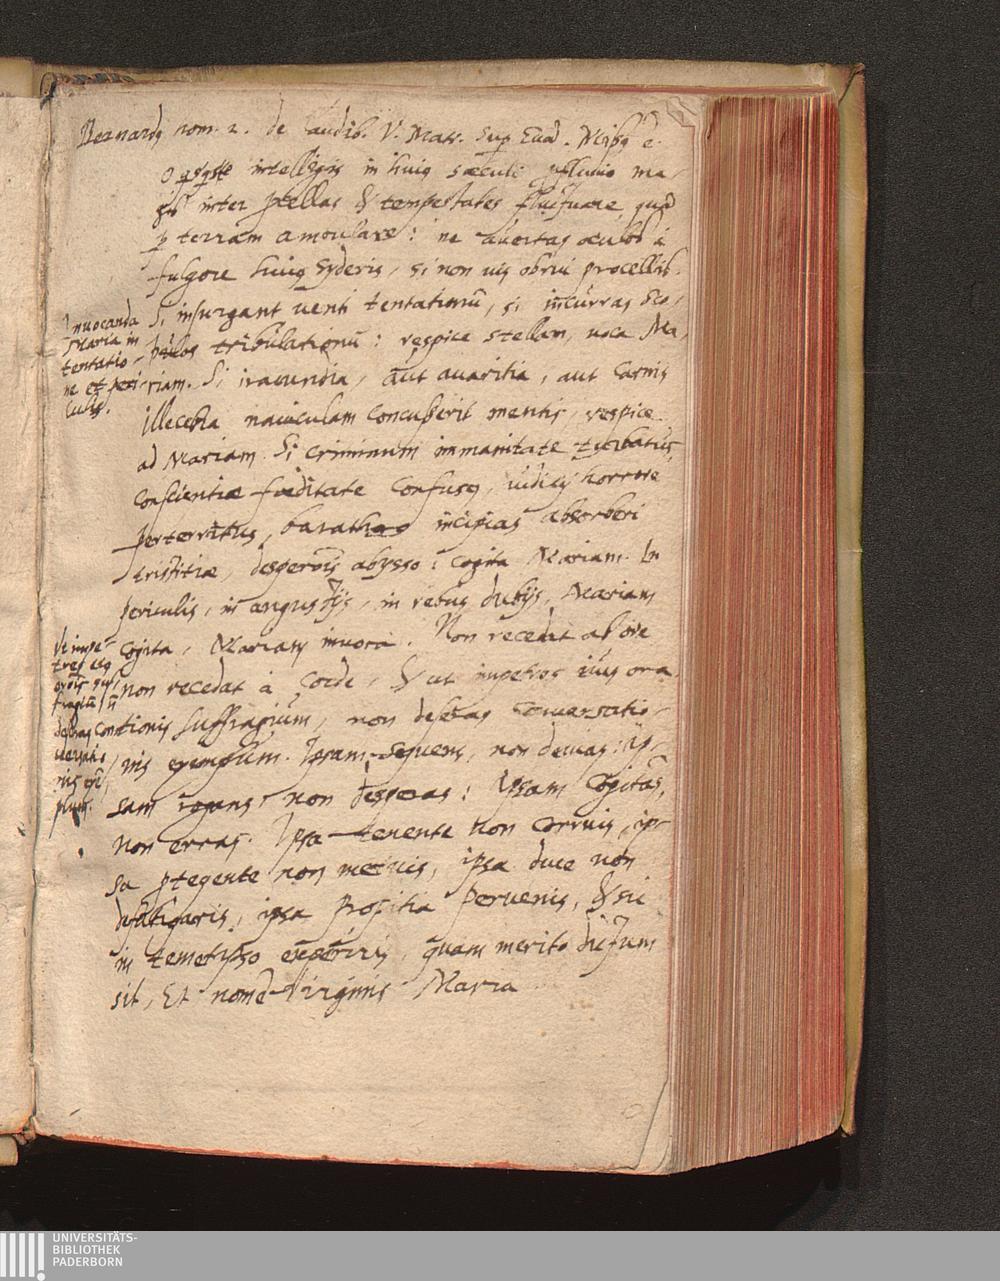 Bernardq hom. 2. de laudib. V. Matr. sup Eua͂. Missq ē.
O qsqs te intelligis in huiq sæculi pfluuio ma-
gis inter pcellas & tempestates fluctuare, qua͂
p terram amoulare: ne auertas oculos à
fulgore huiq syderis, si non uis obrui procellis.
Si insurgant uenti tentationu͂, si incurras sco-
pulos tribulationu͂: respice stellam, uoca Ma-
riam. Si iracundia, aut auaritia, aut carnis
illecebra nauiculam concusserit mentis, respice
ad Mariam. Si criminum immanitate turbatus,
conscientiæ fœditate confusq, iudicij horrore
perterritus, barathro incipias absorberi
tristitiæ, desperõis abysso: cogita Mariam. In
periculis, in angustijs, in rebus dubijs, Mariam
cogita, Mariam inuoca. Non recedat ab ore
non recedat à corde, & ut impetres eius ora
tionis suffragium, non deseras conuersatio-
nis exemplum. Ipsam sequens, non deuias: ip-
sam rogans, non desperas: Ipsam cogitas,
non erras. Ipsa tenente non corruis, ip-
sa ptegente non metuis, ipsa duce non
defatigaris, ipsa propitia peruenis, & sic
in temetipso experiris, quam merito dictum
sit, Et nome͂ Virginis Maria
Inuocanda
Maria in
tentatio-
ne et peri-
culis.
Vt impe-
tres eiq
orõis suf-
fragiu͂ n͂
deseras con
uersatio
nis exe͂
plum.
UNIVERSITÄTS-
BIBLIOTHEK
PADERBORN